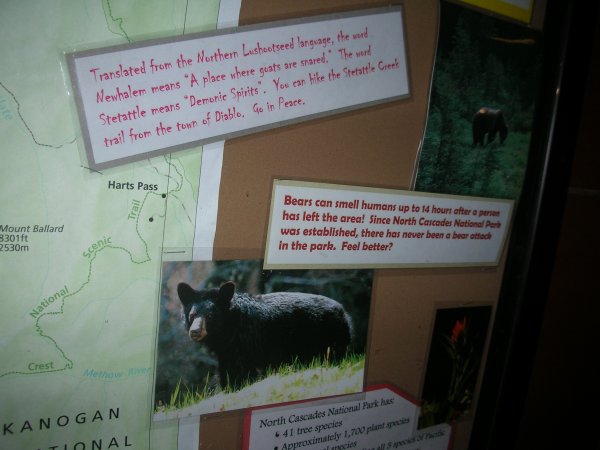 Translated from the Northern Lushootseed language, the word
Newhalem means "A place where goats are snared." The word
Stetattle means "Demonic Spirits". You can hike the Stetattle Creek
trail from the town of Diablo. Go in Peace.
Harts Pass
Mount Ballard
8301ft
2530m
Trail
Scenic
National
Crest
Methow River
KANOGAN
TIONAL
Bears can smell humans up to 14 hours after a person
has left the area! Since North Cascades National Park
was established, there has never been a bear attack
in the park. Feel better?
North Cascades National Park has:
41 tree species
Approximately 1,700 plant species
all 5 species of Pacific